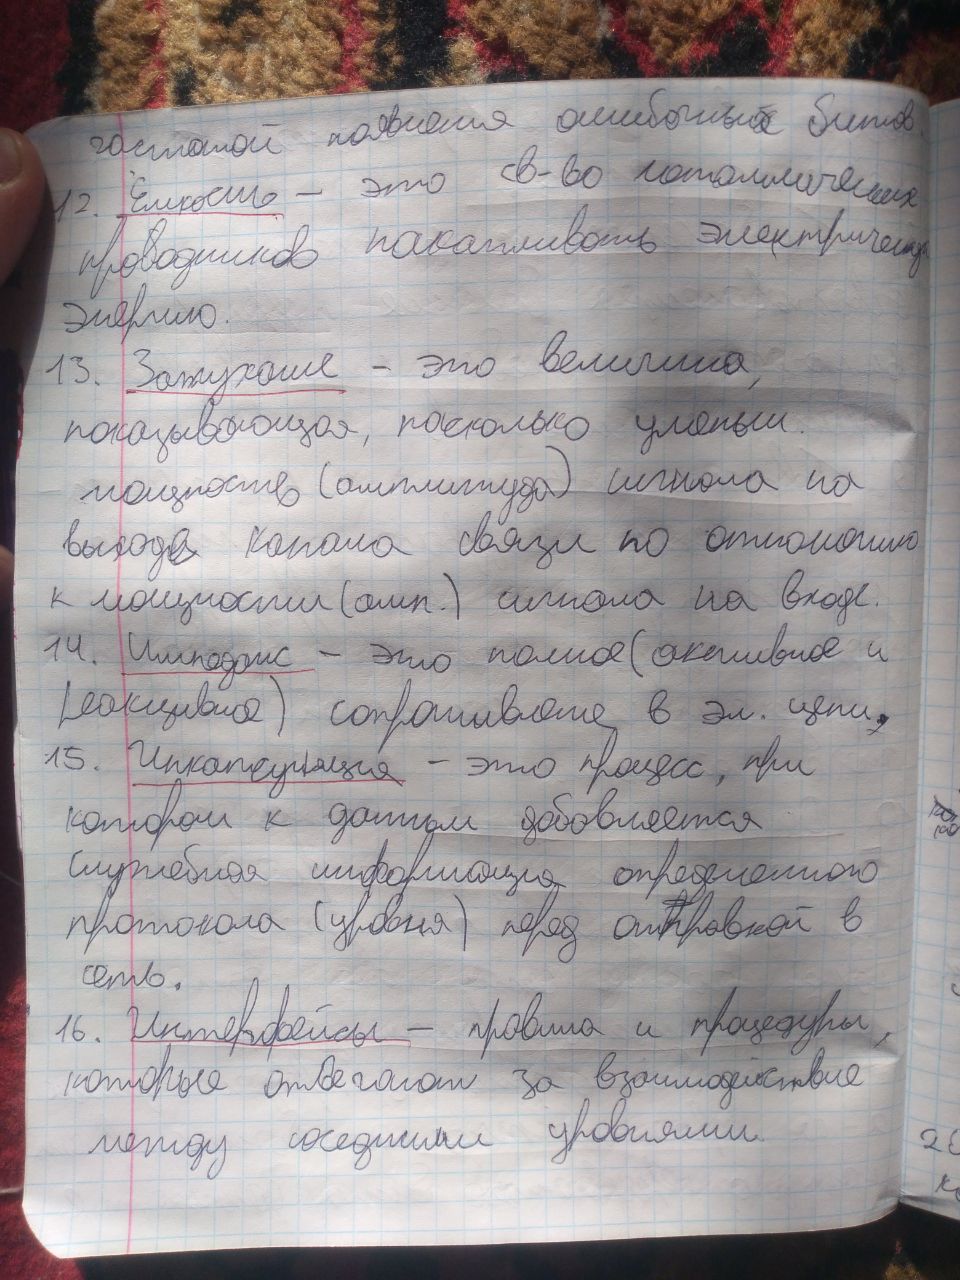 частотой появления ошибочных битов.
12. Ёмкость – это св-во металлических
проводников накапливать электрическую
энергию.
13. Затухание – это величина,
показывающая, насколько уменьш.
мощность (амплитуда) сигнала на
выходе канала связи по отношению
к мощности (амп.) сигнала на входе.
14. Импеданс – это полное (активное и
реактивное) сопротивление в эл. цепи.
15. Инкапсуляция – это процесс, при
котором к данным добавляется
служебная информация определенного
протокола (уровня) перед отправкой в
сеть.
16. Интерфейсы – правила и процедуры,
которые отвечают за взаимодействие
между соседними уровнями.